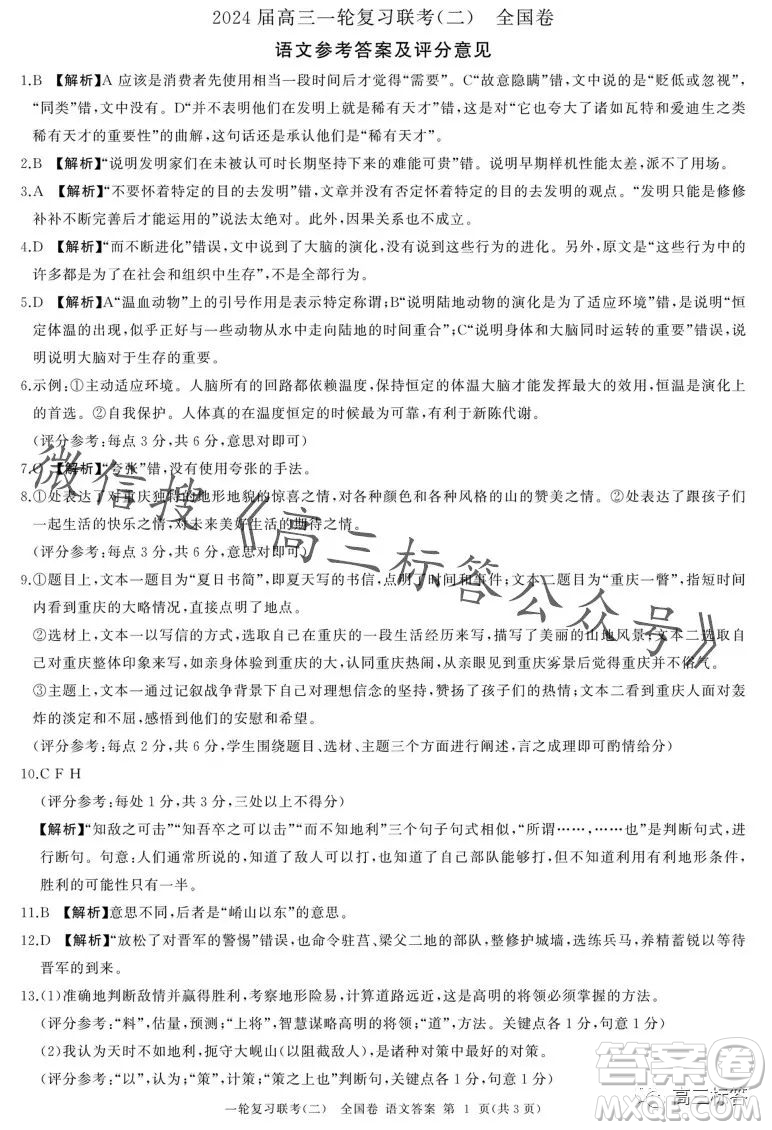 2024 届高三一轮复习联考(二)　全国卷
语文参考答案及评分意见
1.B 【解析】A 应该是消费者先使用相当一段时间后才觉得“需要”。C“故意隐瞒”错，文中说的是“贬低或忽视”，
“同类”错，文中没有。D“并不表明他们在发明上就是天才”错，这是对“它也夸大了诸如瓦特和爱迪生之类
稀有天才的重要性”的曲解，这句话还是承认他们是“稀有天才”。
2.B 【解析】“说明发明家们在未被认可时长期坚持下来的难能可贵”错。说明早期样机性能太差，派不了用场。
3.A 【解析】“不要怀着特定的目的去发明”错，文章并没有否定怀着特定的目的去发明的观点。“发明只能是修修
补补不断完善后才能运用的”说法太绝对。此外，因果关系也不成立。
4.D 【解析】“而不断进化”错误，文中说到了大脑的演化，没有说到这些行为的进化。另外，原文是“这些行为中的
许多都是为了在社会和组织中生存”，不是全部行为。
5.D 【解析】A“温血动物”上的引号作用是表示特定称谓；B“说明陆地动物的演化是为了适应环境”错，说明“恒
定体温的出现，似乎正好与一些动物从水中走向陆地的时间重合”；C“说明身体和大脑同时运转的重要”错误，说
明以此说明大脑对于生存的重要。
6.示例：①主动适应环境。人脑所有的回路都依赖温度，保持恒定的体温大脑才能发挥最大的效用，恒温是演化上
的首选。②自我保护。人体真的在温度恒定的时候最为可靠，有利于新陈代谢。
(评分参考：每点 3 分，共 6 分，意思对即可)
7.C 【解析】“夸张”错，没有使用夸张的手法。
8.①处表达了对重庆独特的地形地貌的惊喜之情，对各种颜色和各种风格的山的赞美之情。②处表达了跟孩子们
一起生活的快乐之情，对未来美好生活的期待之情。
(评分参考：每点 3 分，共 6 分，意思对即可)
9.①题目上，文本一题目为“夏日书简”，即夏天写的书信，点明了时间和事件；文本二题目为“重庆一瞥”，指短时间内
看到重庆的大略情况，直接点明了地点。
②选材上，文本一以写信的方式，选取自己在重庆的一段生活经历来写，描写了美丽的山地风景；文本二选取自己
对重庆整体印象来写，如亲身体验到重庆的大，认识到重庆热闹，从亲眼见到重庆雾景后觉得重庆并不俗气。
③主题上，文本一通过记叙战争背景下自己对理想信念的坚持，赞扬了孩子们的热情；文本二看到重庆人面对轰
炸的淡定和不屈，感到他们的安慰和希望。
(评分参考：每点 2 分，共 6 分，学生围绕题目、选材、主题三个方面进行阐述，言之成理即可酌情给分)
10.C F H
(评分参考：每处 1 分，共 3 分，三处以上不得分)
【解析】“知敌之可击”“知吾卒之可以击”“而不知地利”三个句子句式相似，“所谓……，……也”是判断句式，进
行断句。句意：人们通常所说的，知道了敌人可以打，也知道了自己部队能够打，但不知道利用有利地形条件，
胜利的可能性只有一半。
11.B 【解析】意思不同，后者是“崤山以东”的意思。
12.D 【解析】“放松了对晋军的警惕”错误，也命令驻莒、梁父二地的部队，整修护城墙，选练兵马，养精蓄锐以等待
晋军的到来。
13.(1)准确地判断敌情并赢得胜利，考察地形险易，计算道路远近，这是高明的将领必须掌握的方法。
(评分参考：“料”，估量，预测；“上将”，智慧谋略高明的将领；“道”，方法。关键点各 1 分，句意 1 分)
(2)我认为天时不如地利，扼守大岘山(以阻截敌人)，是诸种对策中最好的对策。
(评分参考：“以”，认为；“策”，计策；“诸”，各种。关键点各 1 分，句意 1 分)
一轮复习联考(二)　全国卷 语文答案 第 1 页(共 3 页)
微信搜《高三标答公众号》
答案圈
MXQE.COM
高三标答